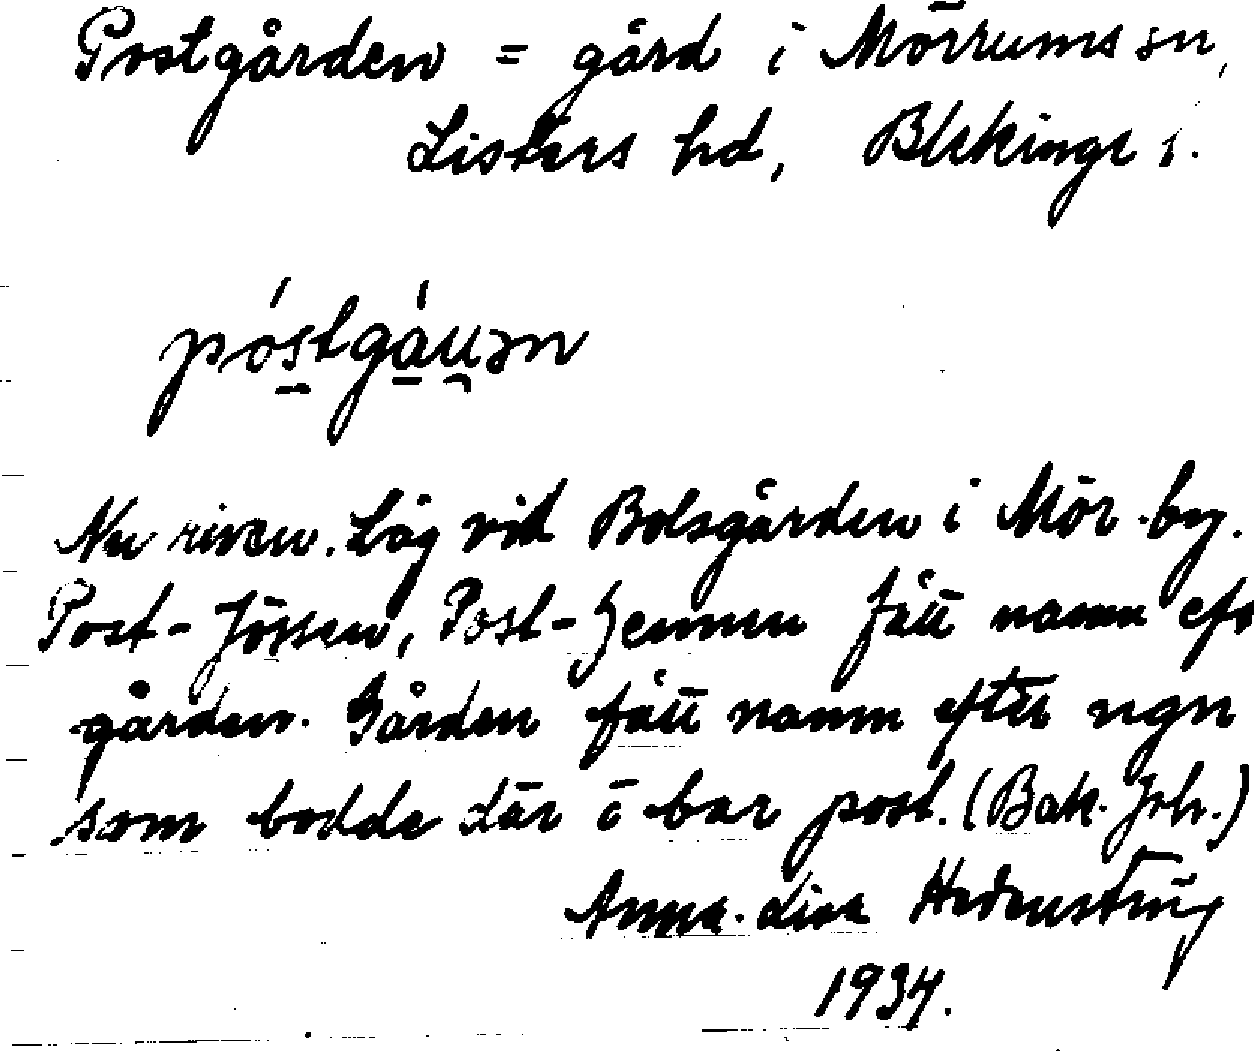 Postgården = gård i Mörrums sn,
Listers hd, Blekinge l.
póstgáuən
Nu riven. Låg vid Bolsgården i Mör. by.
Post-Jössen, Post-Jennen fått namn eft
gården. Gården fått namn efter ngn
som bodde där o bar post. (Bak. Joh.)
Anna-Lisa
1934.